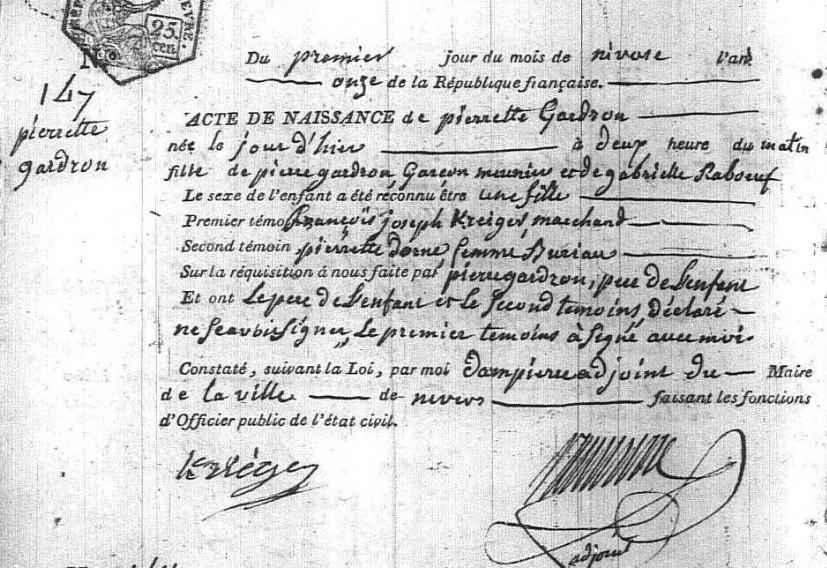 25
cen.
N.º
147
pierrette
gardron
Du premier jour du mois de nivose l'an
onze de la République française.
ACTE DE NAISSANCE de pierrette Gardron
née le jour d'hier à deux heure du matin
fille de pierre gardron Garçon meunier et de gabrielle Raboeuf
Le sexe de l'enfant a été réconnu être une fille
Premier témoin françois joseph Kreiger marchand
Second témoin pierrette dorne femme Buriau
Sur la réquisition à nous faite par pierre gardron, pere de Lenfant
Et ont Le pere de Lenfant et le second temoins déclaré
ne Scavoir signer, Le premier temoins à signé avec moi.
Constaté, suivant la Loi, par moi dampierre adjoint du Maire
de la ville de nevers faisant les fonctions
d'Officier public de l'état civil.
adjoint